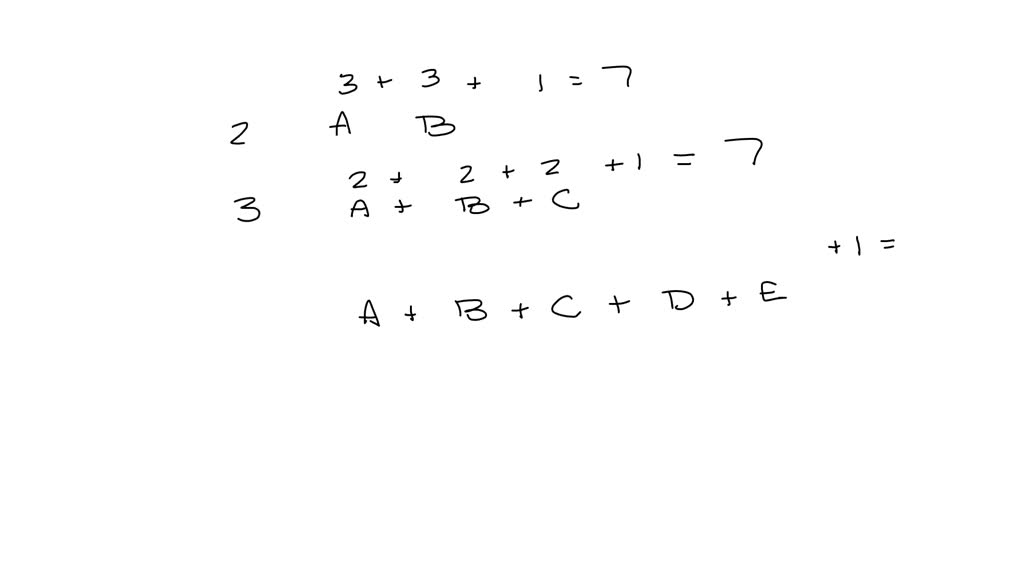 3 + 3 + 1 = 7
2 A B
2 + 2 + 2 + 1 = 7
3 A + B + C
+ 1 =
A + B + C + D + E